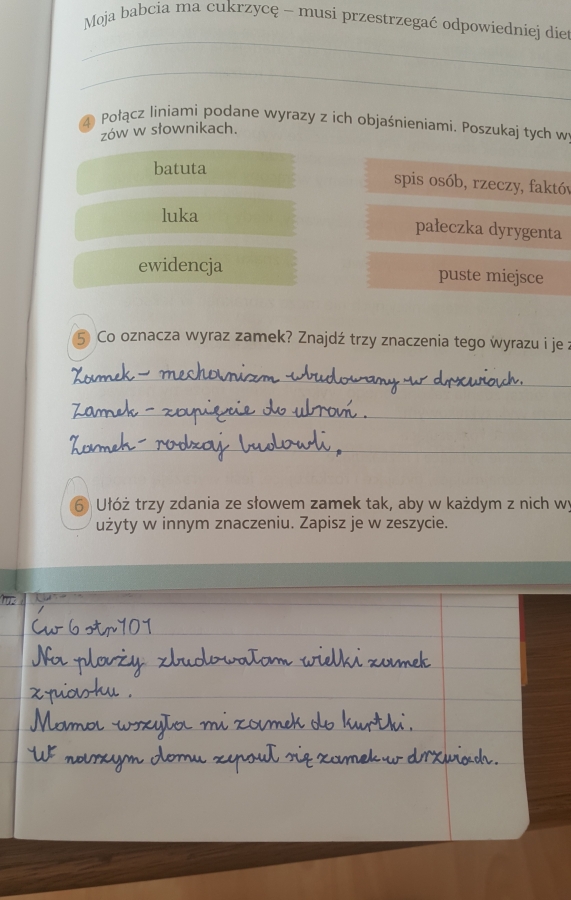 Moja babcia ma cukrzycę – musi przestrzegać odpowiedniej
4 Połącz liniami podane wyrazy z ich objaśnieniami. Poszukaj tych
zów w słownikach.
batuta
spis osób, rzeczy,
luka
pałeczka dyrygenta
ewidencja
puste miejsce
5 Co oznacza wyraz zamek? Znajdź trzy znaczenia tego wyrazu i je
Zamek – mechanizm wbudowany w drzwiach.
Zamek – zapięcie do ubrań.
Zamek – rodzaj budowli,
6 Ułóż trzy zdania ze słowem zamek tak, aby w każdym z nich
użyty w innym znaczeniu. Zapisz je w zeszycie.
Ćw 6 str 101
Na plaży zbudowałam wielki zamek
z piasku.
Mama wszyła mi zamek do kurtki.
W naszym domu zepsuł się zamek w drzwiach.